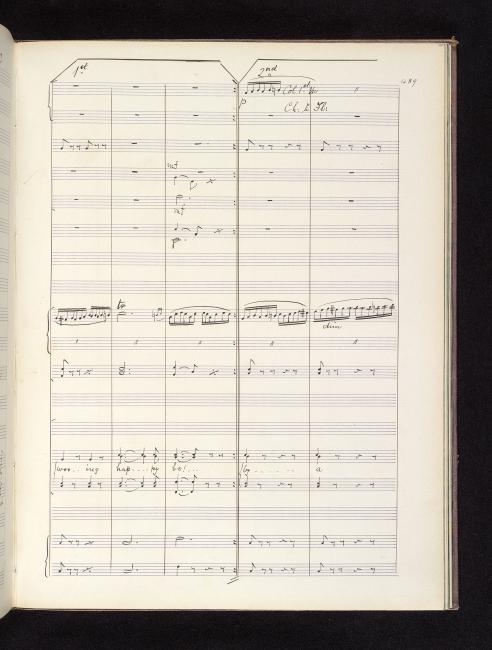 1st 2nd
Col 1st
Cl. & Fl.
p
mf
mf
tr
dim
woo..ing hap....py be!... by...... a